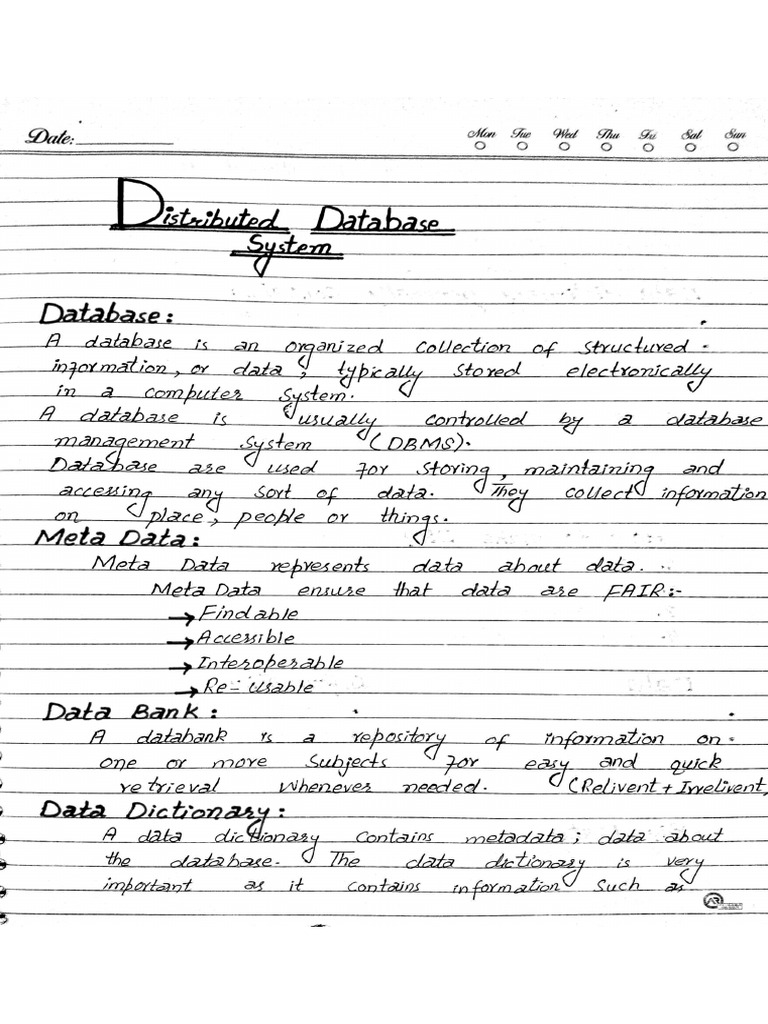 Date:
Mon Tue Wed Thu Fri Sat Sun
Distributed Database
System
Database:
A database is an organized collection of structured
information, or data, typically stored electronically
in a computer system.
A database is usually controlled by a database
management system (DBMS).
Database are used for storing, maintaining and
accessing any sort of data. They collect information
on place, people or things.
Meta Data:
Meta Data represents data about data.
Meta Data ensure that data are FAIR:-
→ Findable
→ Accessible
→ Interoperable
→ Re-usable
Data Bank:
A databank is a repository of information on
one or more subjects for easy and quick
retrieval whenever needed. (Relivent + Irrelivent,
Data Dictionary:
A data dictionary contains metadata; data about
the database. The data dictionary is very
important as it contains information such as
AR